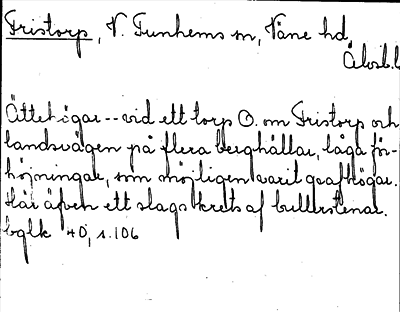 Fristorp, V. Tunhems sn, Väne hd,
Älvsb.l
Ättehögar -- vid ett torp Ö. om Fristorp och
landsvägen på flera berghällar, låga för-
höjningar, som möjligen varit grafhögar.
Här äfven ett slags krets af bullerstenar.
bglk 40, s. 106